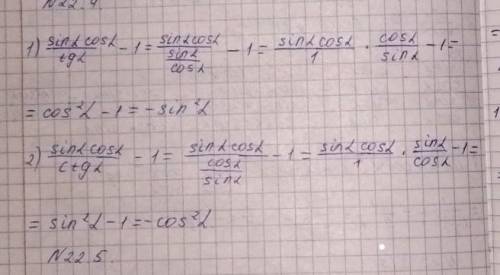 N22.4.
1) sinα cosα / tgα - 1 = sinα cosα / (sinα / cosα) - 1 = sinα cosα / 1 · cosα / sinα - 1 =
= cos²α - 1 = - sin²α
2) sinα·cosα / ctgα - 1 = sinα·cosα / (cosα / sinα) - 1 = sinα cosα / 1 · sinα / cosα - 1 =
= sin²α - 1 = - cos²α
N22.5.